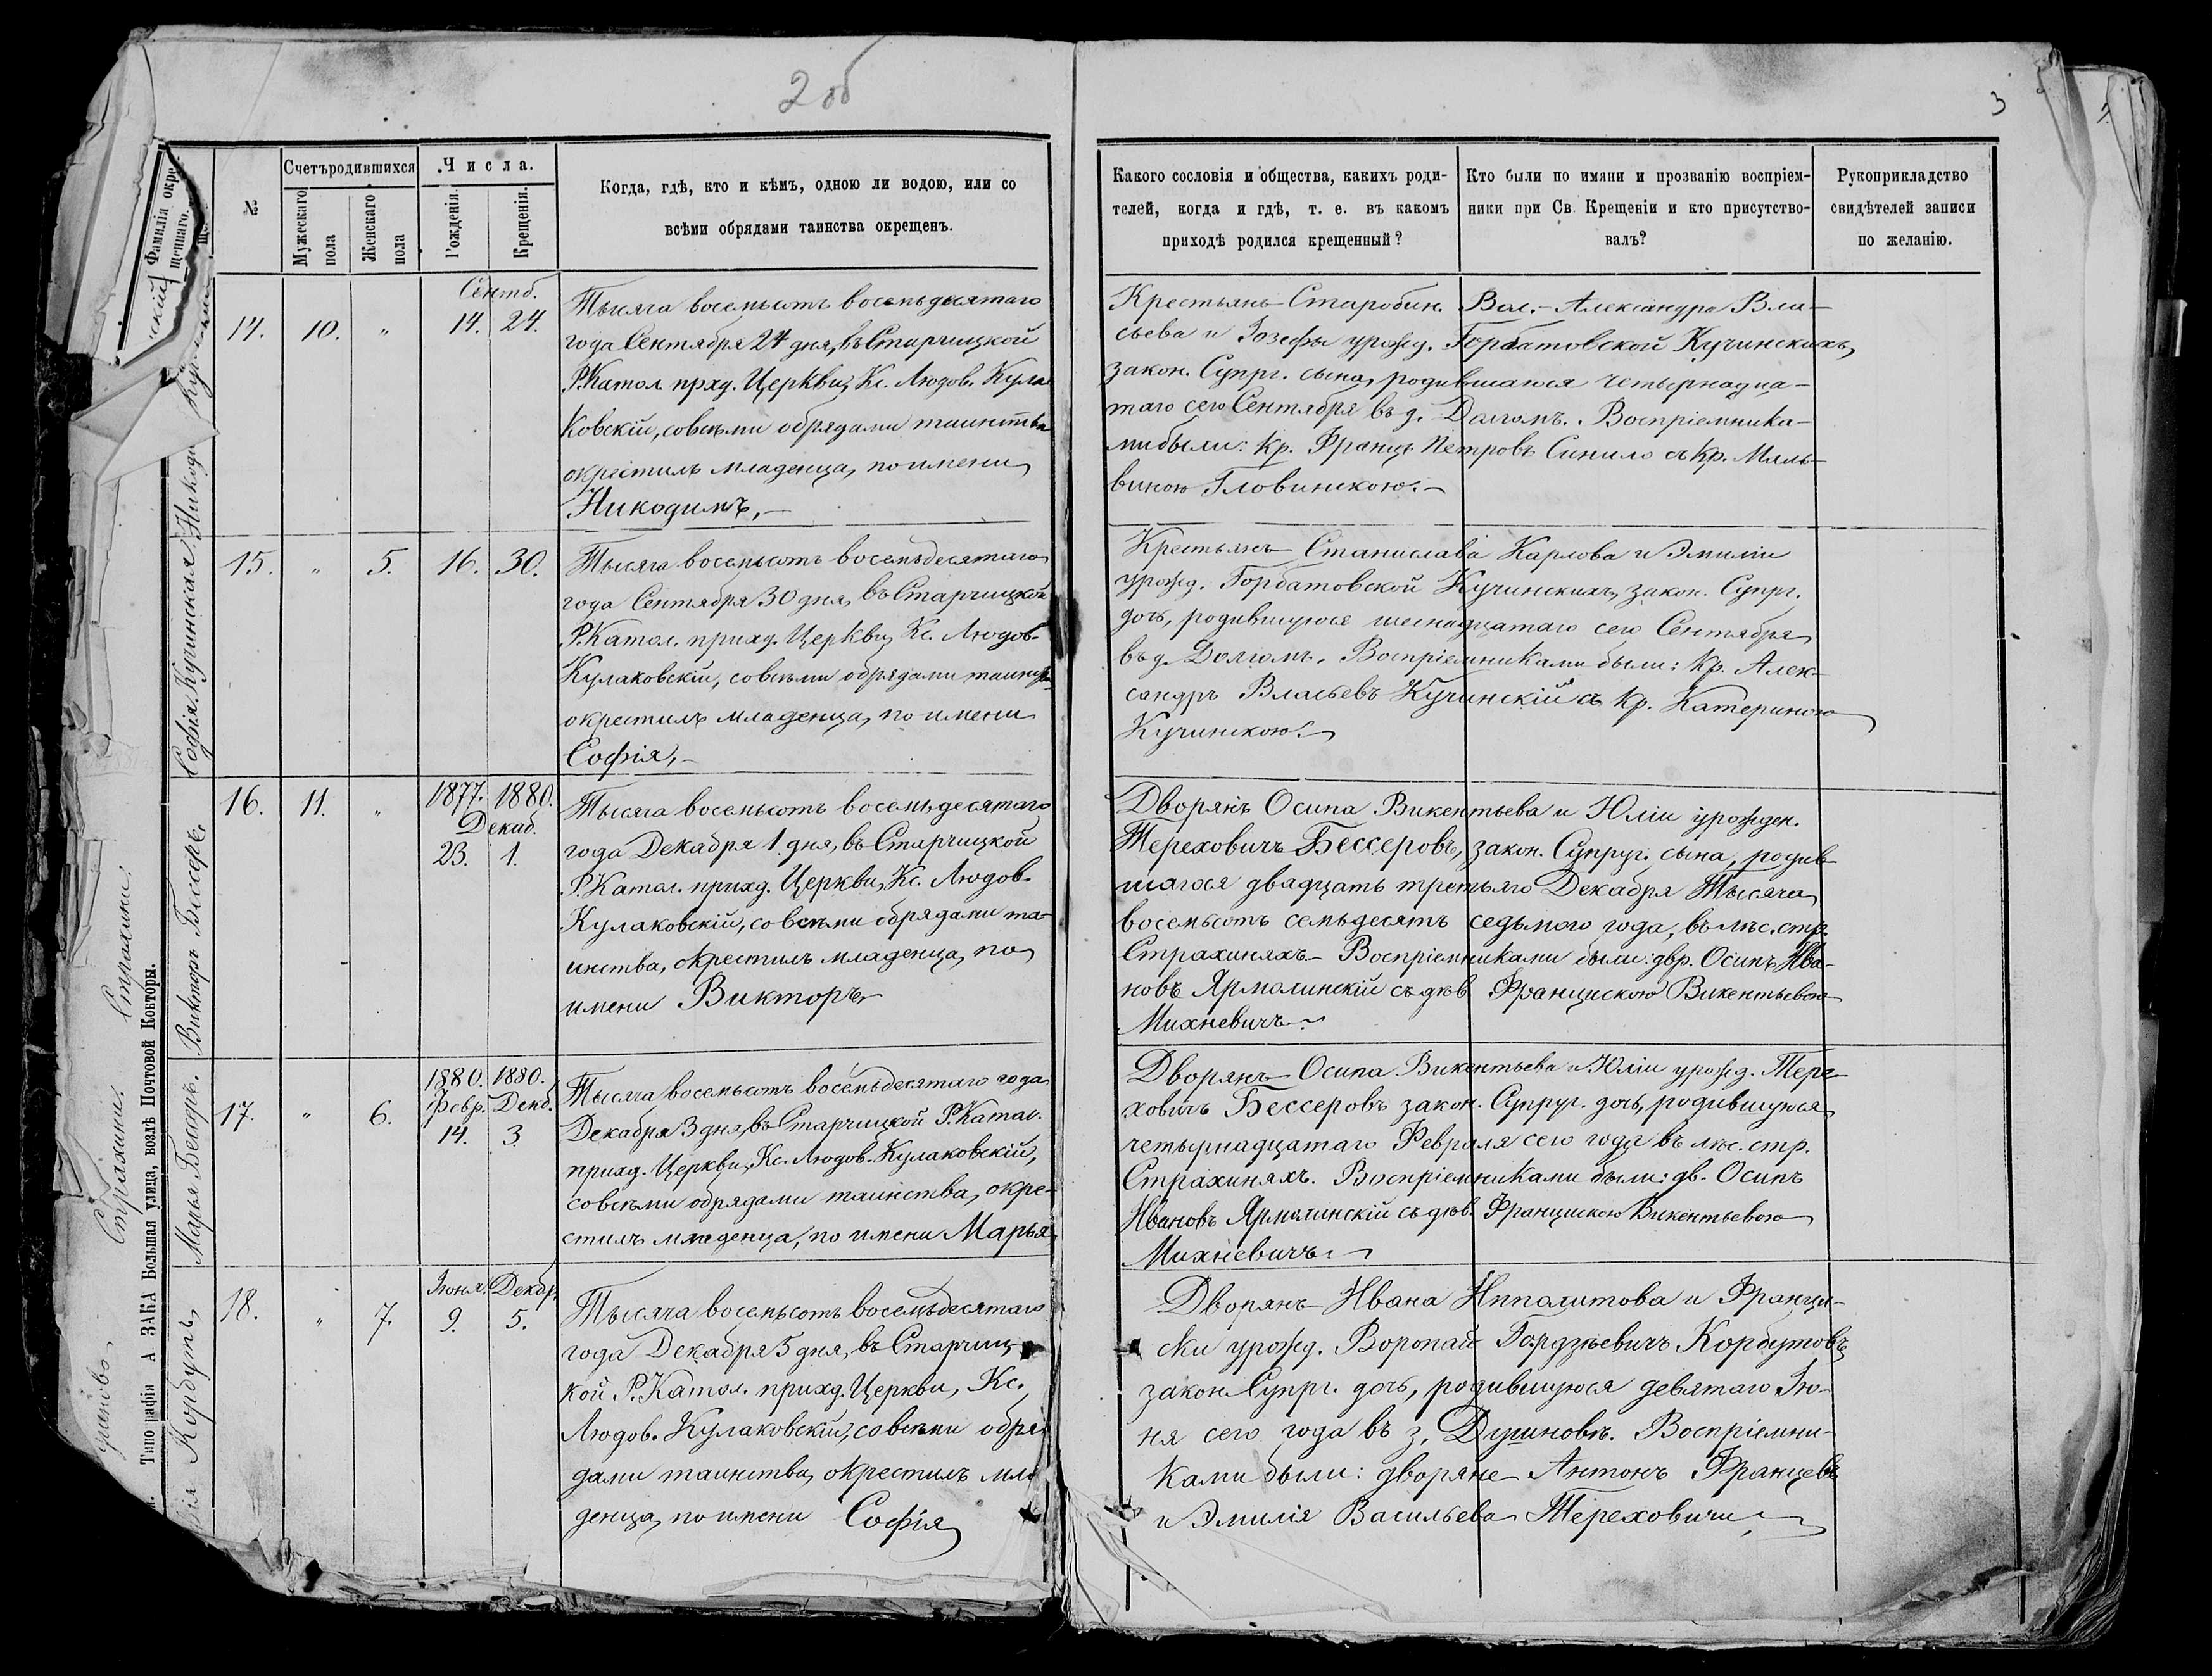 2 об
3
Фамилія окре-
щеннаго.
№
Счетъ родившихся
Мужескаго
пола
Женскаго
пола
Числа.
Рожденія.
Крещенія.
Когда, гдѣ, кто и кѣмъ, одною ли водою, или со
всѣми обрядами таинства окрещенъ.
Какого сословія и общества, какихъ роди-
телей, когда и гдѣ, т. е. въ какомъ
приходѣ родился крещенный?
Кто были по имяни и прозванію воспріем-
ники при Св. Крещеніи и кто присутство-
валъ?
Рукоприкладство
свидѣтелей записи
по желанію.
14.
10.
"
Сентб.
14. 24.
Тысяча восемьсотъ восемьдесятаго
года Сентября 24 дня, въ Старчицкой
Р. Катол. прхд. Церкви, Кс. Людов. Кула
ковскій, со всѣми обрядами таинства
окрестилъ младенца, по имени
Никодимъ,-
Крестьянъ Старобин. Вол.- Александра Вла-
сьева и Іозефы урожд. Горбатовской Кучинскихъ,
закон. Супрг. сына, родившагося четырнадца-
таго сего Сентября въ д. Долгомъ. Воспріемника-
ми были: кр. Францъ Петровъ Синило съ кр. Маль-
виною Гловинскою.-
Софія Кучинская.
15.
"
5.
16. 30.
Тысяча восемьсотъ восемьдесятаго
года Сентября 30 дня, въ Старчицкой
Р. Катол. приход. Церкви, Кс. Людов.
Кулаковскій, со всѣми обрядами таинств
окрестилъ младенца, по имени
Софія,-
Крестьянъ Станислава Карлова и Эмиліи
урожд. Горбатовской Кучинскихъ, закон. Супрг.
дочь, родившуюся шестнадцатаго сего Сентября
въ д. Долгомъ. Воспріемниками были: кр. Алек-
сандръ Власьевъ Кучинскій съ кр. Катериною
Кучинскою.
Викторъ Бессеръ
16.
11.
"
1877. 1880.
Декаб.
23. 1.
Тысяча восемьсотъ восемьдесятаго
года Декабря 1 дня, въ Старчицкой
Р. Катол. приход. Церкви, Кс. Людов.
Кулаковскій, со всѣми обрядами та-
инства, окрестилъ младенца, по
имени Викторъ
Дворянъ Осипа Викентьева и Юліи урожден.
Тереховичъ Бессеровъ, закон. Супруг. сына, родив-
шагося двадцать третьяго Декабря Тысяча
восемьсотъ семьдесятъ седьмого года, въ лѣс. стр.
Страхиняхъ.- Воспріемниками были: двр. Осипъ Ива-
новъ Ярмолинскій съ дѣв. Францискою Викентьевою
Михневичъ.
Марья Бессеръ.
17.
"
6.
1880. 1880.
Февр. Декб.
14. 3.
Тысяча восемьсотъ восемьдесятаго года
Декабря 3 дня, въ Старчицкой Р. Катол.
приход. Церкви, Кс. Людов. Кулаковскій,
со всѣми обрядами таинства, окре-
стилъ младенца, по имени Марья
Дворянъ Осипа Викентьева и Юліи урожд. Тере-
ховичъ Бессеровъ закон. Супруг. дочь, родившуюся
четырнадцатаго Февраля сего года въ лѣс. стр.
Страхиняхъ. Воспріемниками были: дв. Осипъ
Ивановъ Ярмолинскій съ дѣв. Францискою Викентьевою
Михневичъ.
Корбутъ
18.
"
7.
Іюня. Декбр.
9. 5.
Тысяча восемьсотъ восемьдесятаго
года Декабря 5 дня, въ Старчиц
кой Р. Катол. приход. Церкви, Кс.
Людов. Кулаковскій, со всѣми обря
дами таинства, окрестилъ мла
денца, по имени Софія
Дворянъ Ивана Ипполитова и Франци-
ски урожд. Воропай Гордзѣевичъ Корбутовъ,
закон. Супрг. дочь, родившуюся девятаго Ію-
ня сего года въ з. Душновѣ. Воспріемни-
ками были: дворяне Антонъ Францевъ
и Эмилія Васильева Тереховичи,
Страхини.
Страхини.
Типографія А ЗАКА Большая улица, возлѣ Почтовой Конторы.